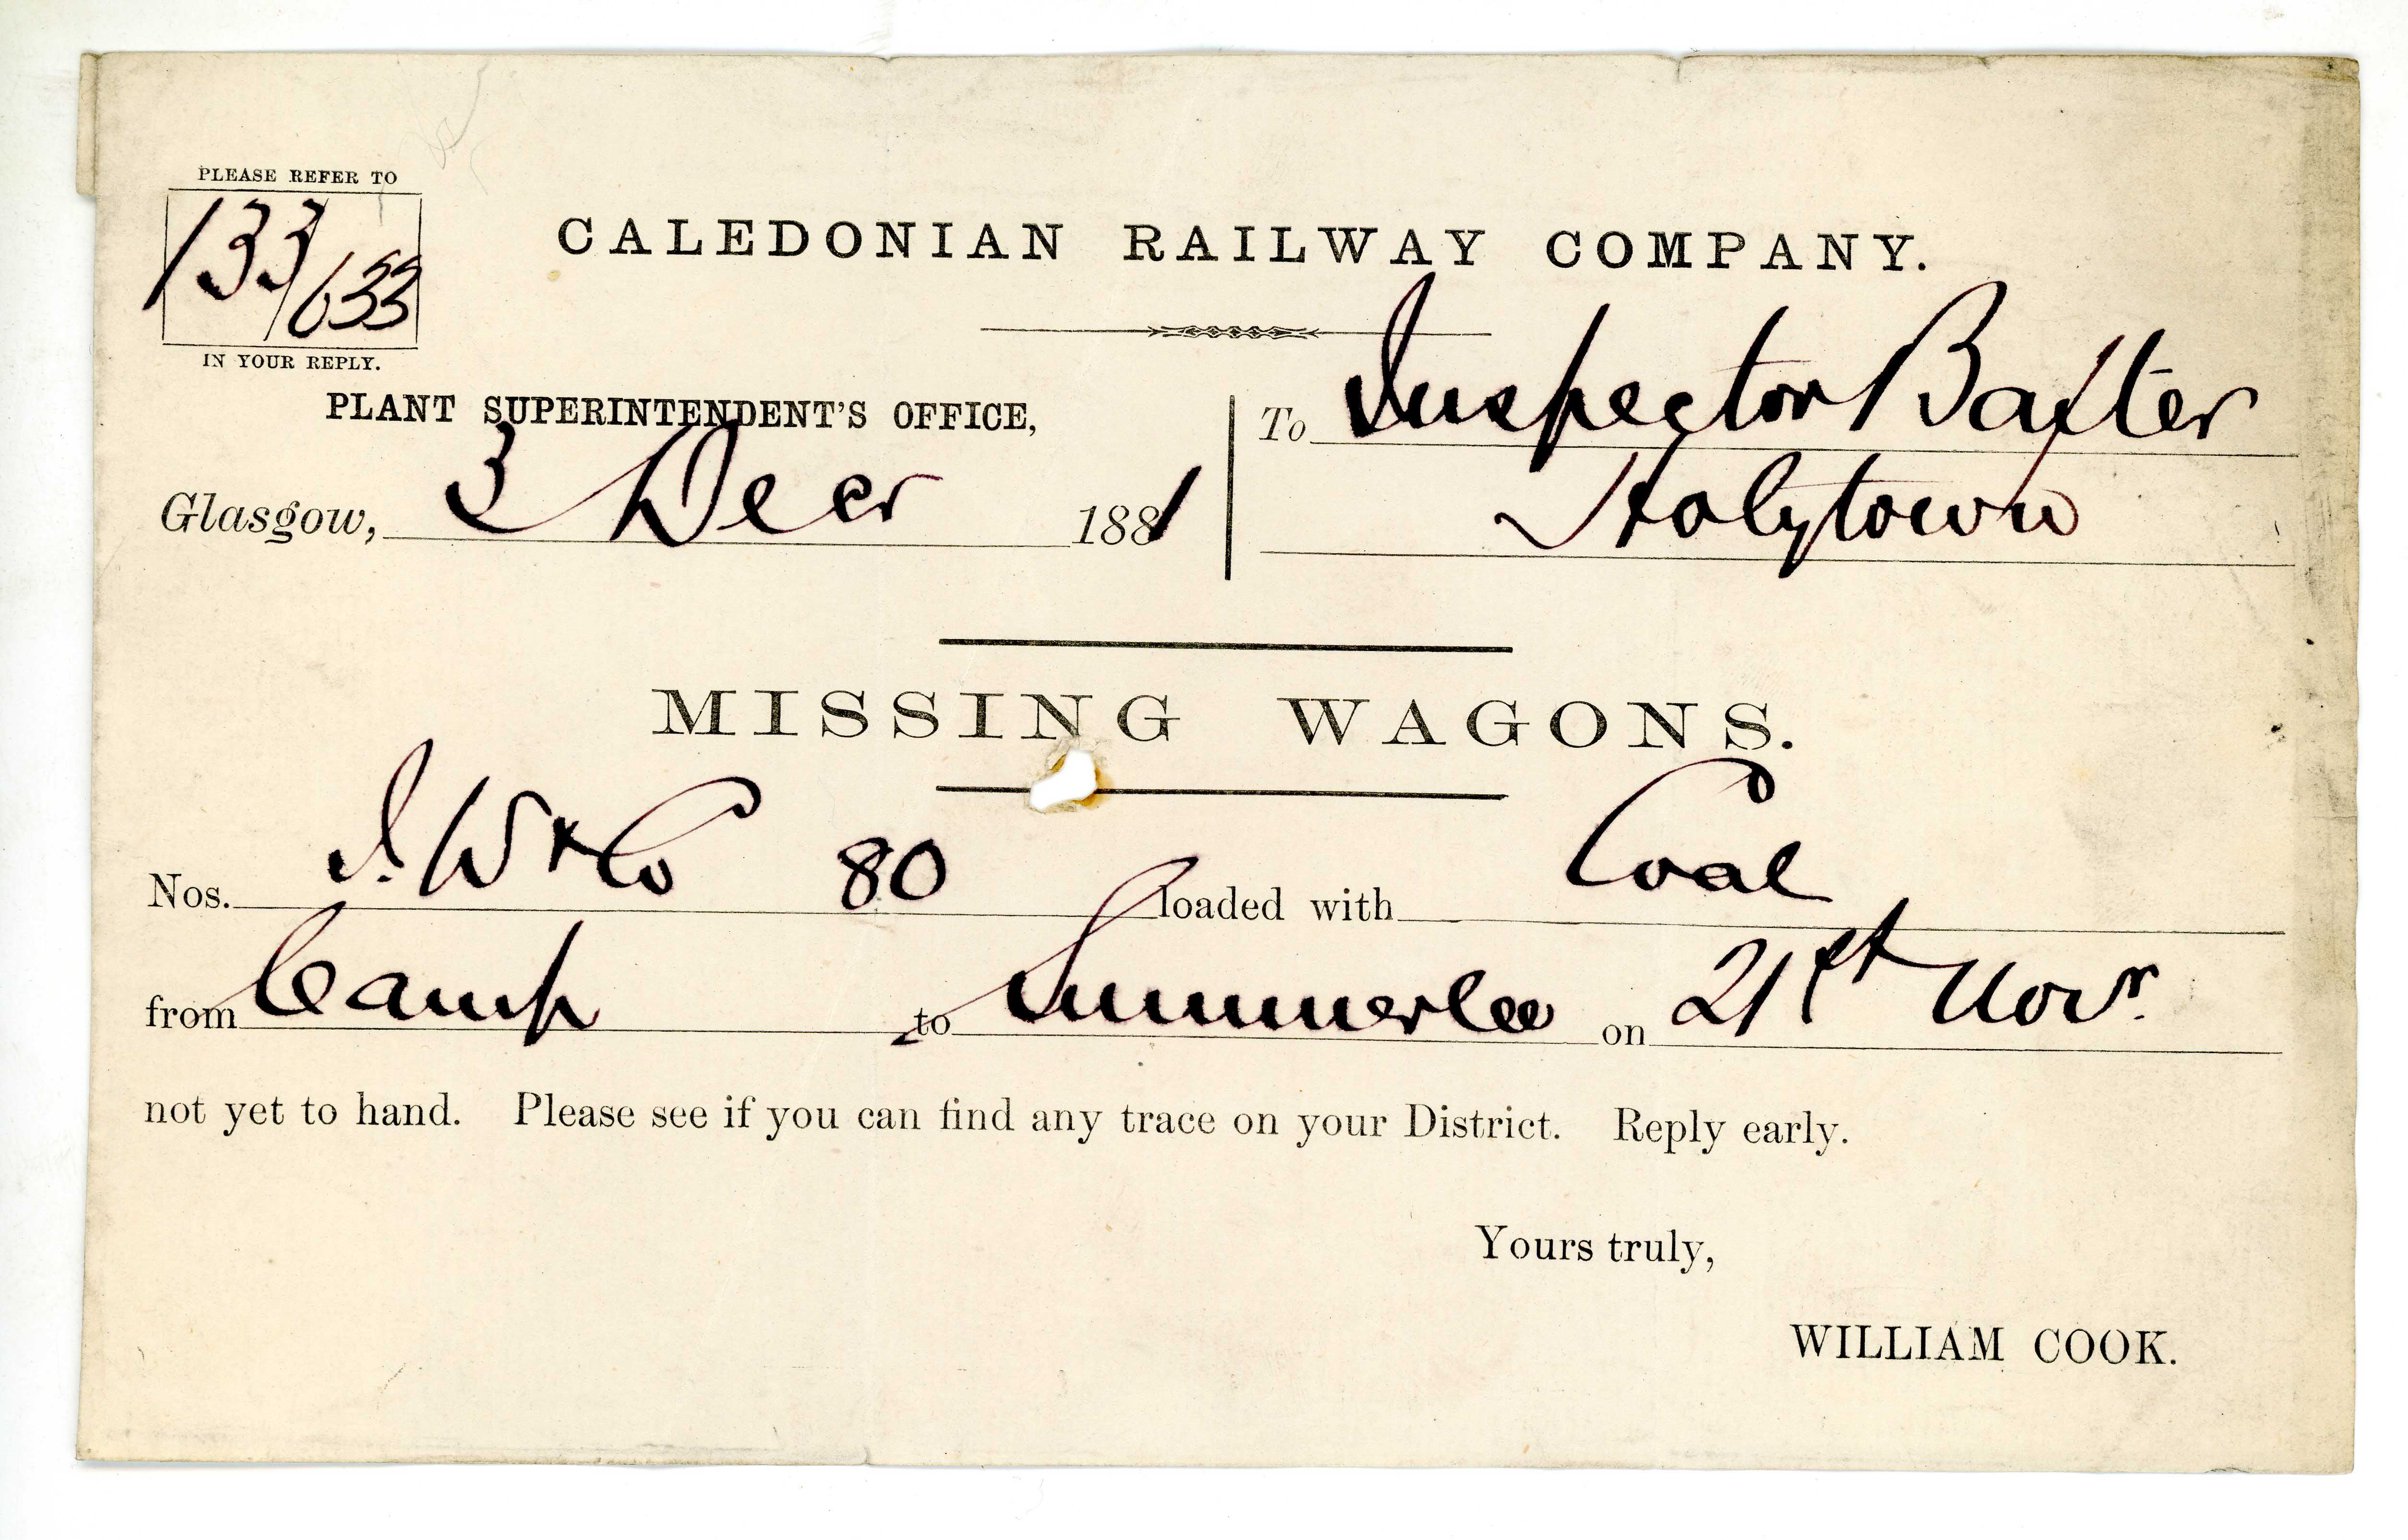 PLEASE REFER TO
133/633
IN YOUR REPLY.
CALEDONIAN RAILWAY COMPANY.
PLANT SUPERINTENDENT'S OFFICE,
Glasgow, 3 Decr 1881
To Inspector Baxter
Holytown
MISSING WAGONS.
Nos. J. W & Co 80 loaded with Coal
from Camp to Summerlee on 21st Novr.
not yet to hand. Please see if you can find any trace on your District. Reply early.
Yours truly,
WILLIAM COOK.